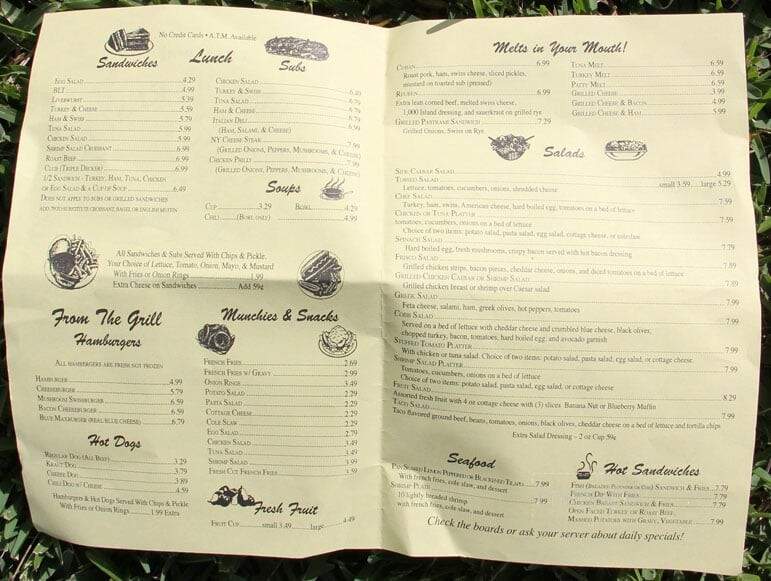 No Credit Cards • A.T.M. Available
Lunch
Sandwiches
Egg Salad 4.29
BLT 4.99
Liverwurst 5.39
Turkey & Cheese 5.59
Ham & Swiss 5.79
Tuna Salad 5.79
Chicken Salad 5.99
Shrimp Salad Croissant 6.99
Roast Beef 6.99
Club (Triple Decker) 6.99
1/2 Sandwich - Turkey, Ham, Tuna, Chicken
or Egg Salad & a Cup of Soup 6.49
Does not apply to subs or grilled sandwiches
Subs
Chicken Salad
Turkey & Swiss 6.49
Tuna Salad
Ham & Cheese
Italian Deli
(Ham, Salami, & Cheese) 6.99
NY Cheese Steak
(Grilled Onions, Peppers, Mushrooms, & Cheese)
Chicken Philly 7.99
(Grilled Onions, Peppers, Mushrooms, & Cheese)
Soups
Cup 3.29 Bowl 4.29
Chili (Bowl only) 4.99
All Sandwiches & Subs Served With Chips & Pickle.
Your Choice of Lettuce, Tomato, Onion, Mayo, & Mustard
With Fries or Onion Rings 1.99
Extra Cheese on Sandwiches Add 59¢
From The Grill
Hamburgers
All hamburgers are fresh not frozen
Hamburger 4.99
Cheeseburger 5.79
Mushroom Swissburger 6.59
Bacon Cheeseburger 6.59
Blue Maxburger (real blue cheese) 6.79
Hot Dogs
Regular Dog (All Beef) 3.29
Kraut Dog 3.79
Cheese Dog 3.89
Chili Dog w/ Cheese 4.59
Hamburgers & Hot Dogs Served With Chips & Pickle
With Fries or Onion Rings 1.99 Extra
Munchies & Snacks
French Fries 2.69
French Fries w/ Gravy 2.99
Onion Rings 3.49
Potato Salad 2.29
Pasta Salad 2.29
Cottage Cheese 2.29
Cole Slaw 2.29
Egg Salad 2.79
Chicken Salad 3.49
Tuna Salad 3.49
Shrimp Salad 3.99
Fresh Cut French Fries 3.59
Fresh Fruit
Fruit Cup small 3.49 large 4.49
Melts in Your Mouth!
Cuban 6.99
Roast pork, ham, swiss cheese, sliced pickles,
mustard on toasted sub (pressed)
Reuben 6.99
Extra lean corned beef, melted swiss cheese,
1,000 Island dressing, and sauerkraut on grilled rye
Grilled Pastrami Sandwich 7.29
Grilled Onions, Swiss on Rye
Tuna Melt 6.59
Turkey Melt 6.59
Patty Melt 6.59
Grilled Cheese 3.99
Grilled Cheese & Bacon 4.99
Grilled Cheese & Ham 5.99
Salads
Side Caesar Salad 4.99
Tossed Salad small 3.59 large 5.29
Lettuce, tomatoes, cucumbers, onions, shredded cheese
Chef Salad 7.59
Turkey, ham, swiss, American cheese, hard boiled egg, tomatoes on a bed of lettuce
Chicken or Tuna Platter 7.59
tomatoes, cucumbers, onions on a bed of lettuce
Choice of two items: potato salad, pasta salad, egg salad, cottage cheese, or coleslaw
Spinach Salad 7.79
Hard boiled egg, fresh mushrooms, crispy bacon served with hot bacon dressing
Frisco Salad 7.89
Grilled chicken strips, bacon pieces, cheddar cheese, onions, and diced tomatoes on a bed of lettuce
Grilled Chicken Caesar or Shrimp Salad 7.89
Grilled chicken breast or shrimp over Caesar salad
Greek Salad 7.99
Feta cheese, salami, ham, greek olives, hot peppers, tomatoes
Cobb Salad 7.99
Served on a bed of lettuce with cheddar cheese and crumbled blue cheese, black olives,
chopped turkey, bacon, tomatoes, hard boiled egg, and avocado garnish
Stuffed Tomato Platter 7.99
With chicken or tuna salad. Choice of two items: potato salad, pasta salad, egg salad, or cottage cheese.
Shrimp Salad Platter 7.99
Tomatoes, cucumbers, onions on a bed of lettuce
Choice of two items: potato salad, pasta salad, egg salad, or cottage cheese
Fruit Salad 8.29
Assorted fresh fruit with 4 oz cottage cheese with (3) slices Banana Nut or Blueberry Muffin
Taco Salad 7.99
Taco flavored ground beef, beans, tomatoes, onions, black olives, cheddar cheese on a bed of lettuce and tortilla chips
Extra Salad Dressing – 2 oz Cup 59¢
Seafood
Pan Seared Lemon Peppered or Blackened Tilapia 7.99
With french fries, cole slaw, and dessert
Shrimp Plate 7.99
10 lightly breaded shrimp
with french fries, cole slaw, and dessert
Hot Sandwiches
Fish (Breaded Flounder or Cod) Sandwich & Fries 7.79
French Dip With Fries 7.79
Chicken Breast Sandwich & Fries 7.79
Open Faced Turkey or Roast Beef,
Mashed Potatoes with Gravy, Vegetable 7.99
Check the boards or ask your server about daily specials!